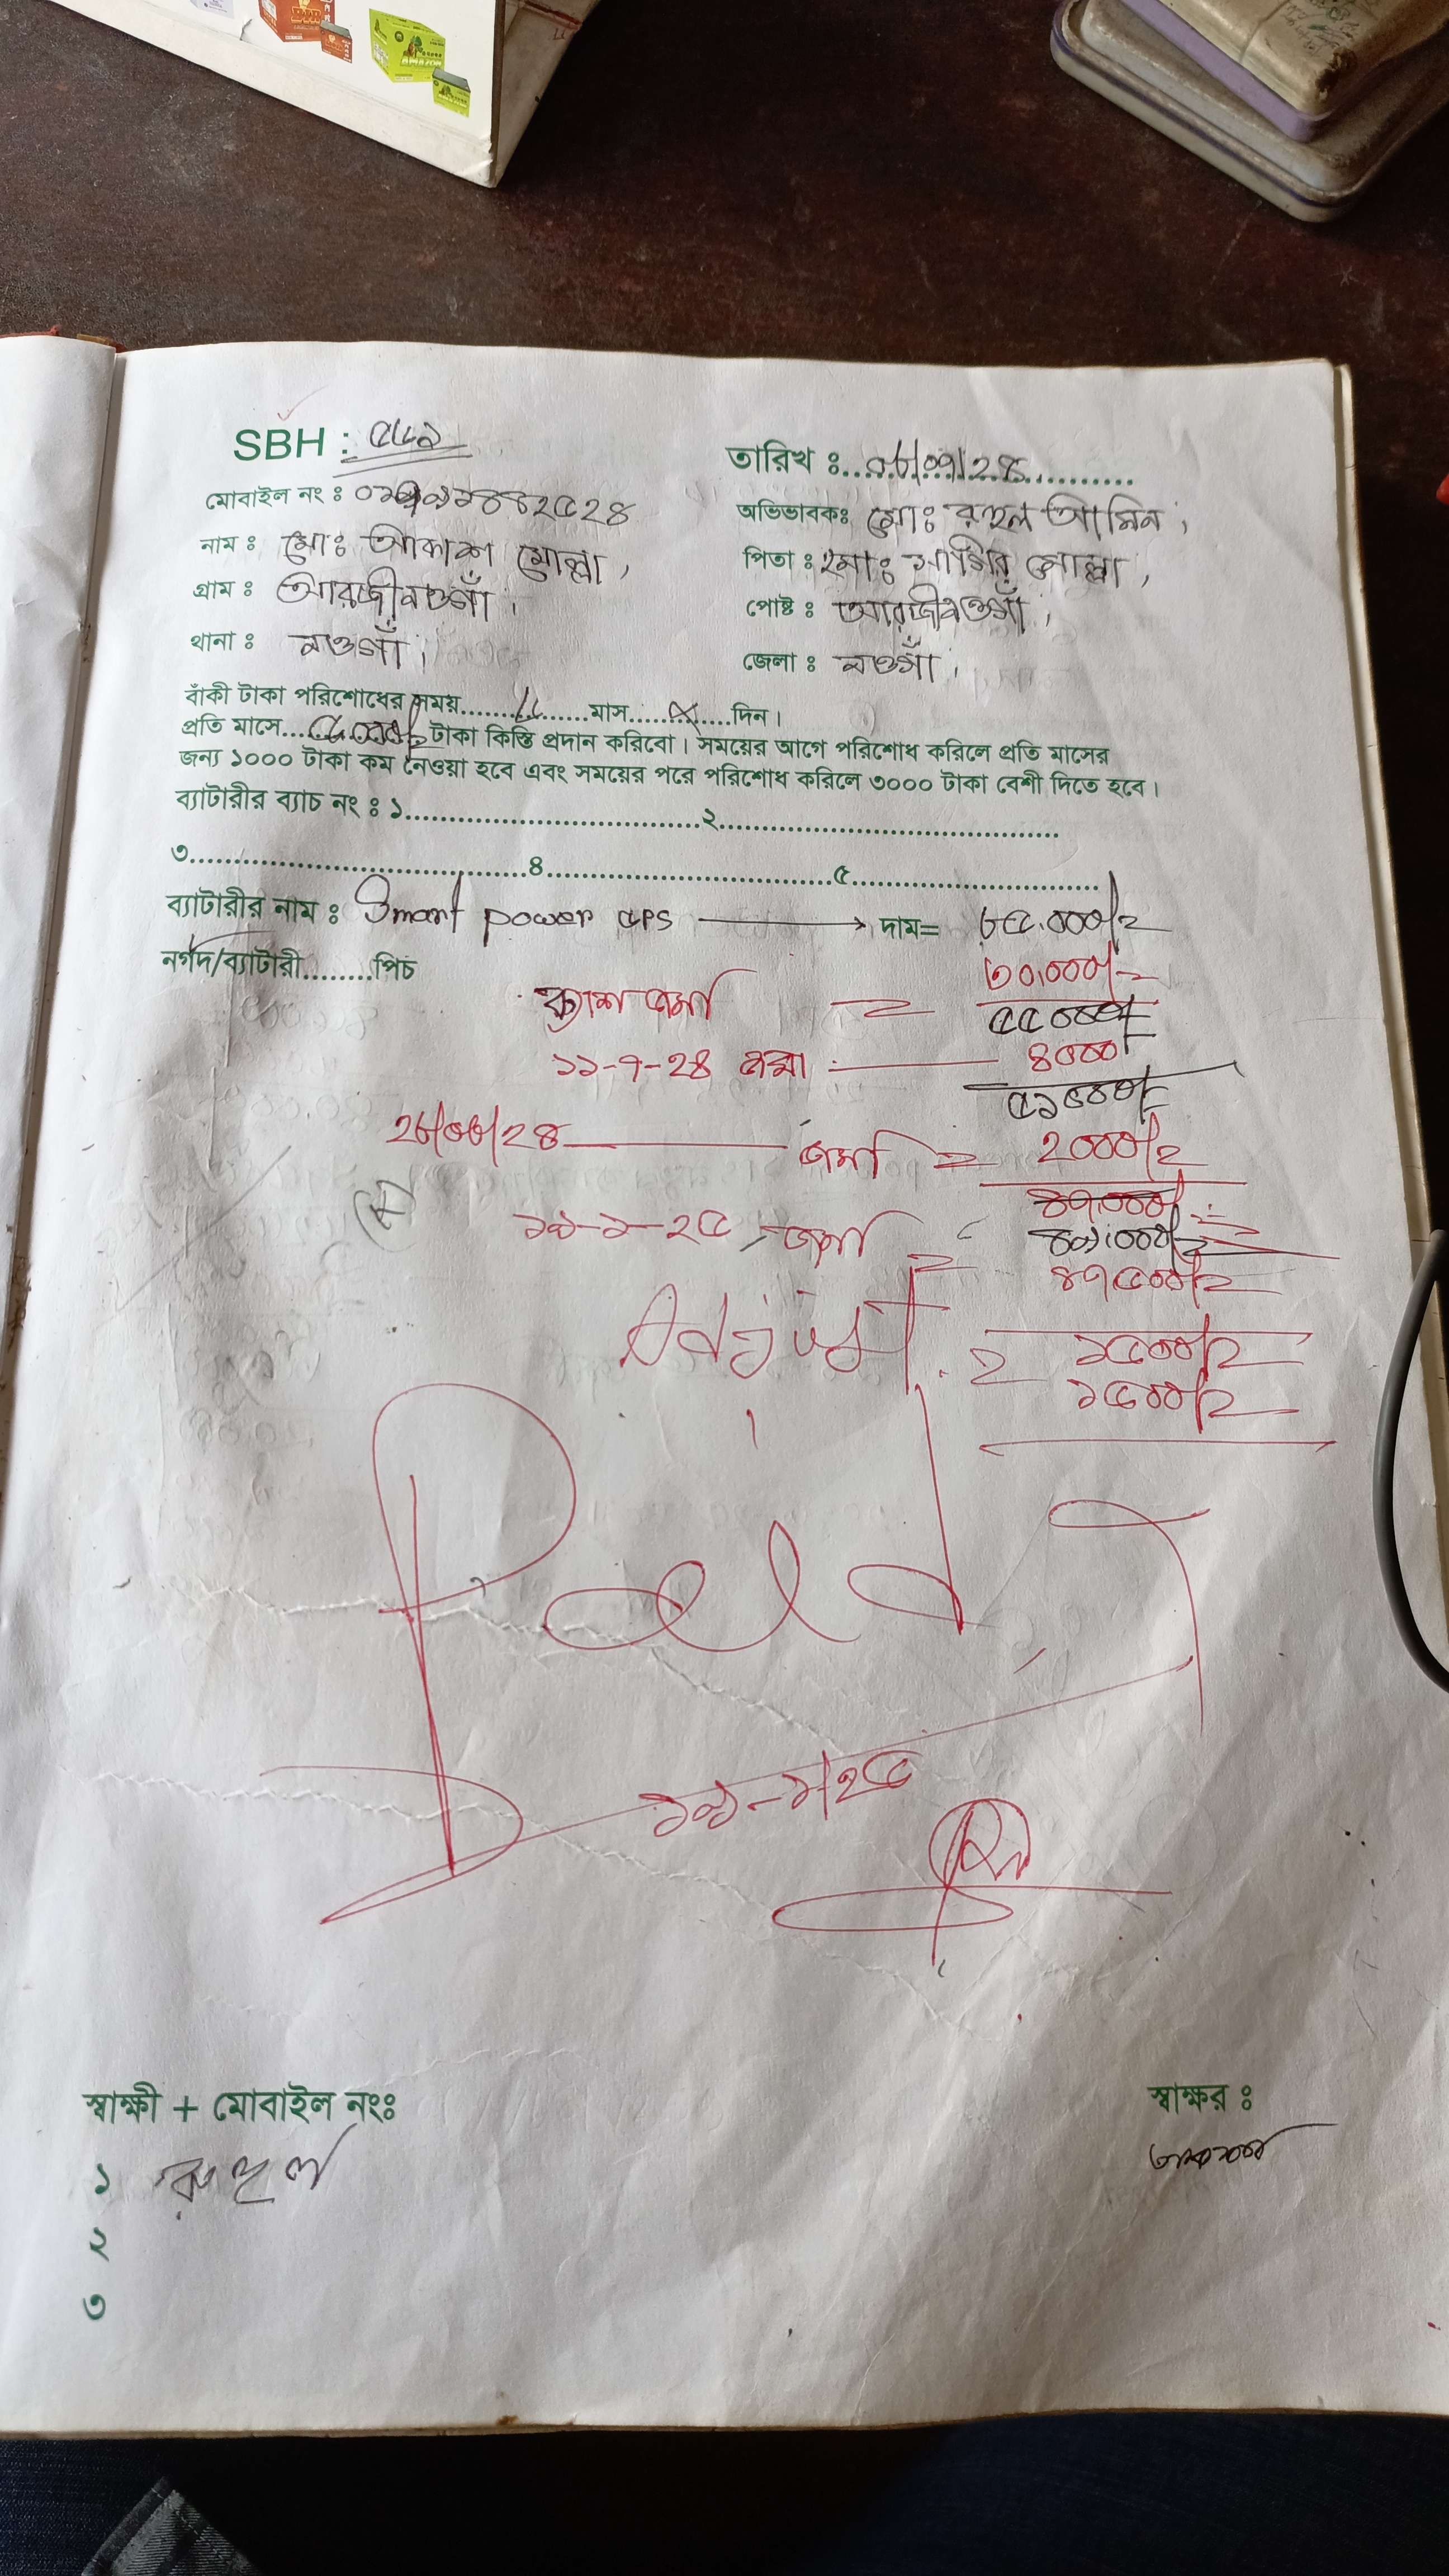 AMAZON
SBH : ৫৮৯
তারিখ ঃ ০৮/০৭/২৪
মোবাইল নং ঃ
অভিভাবকঃ মোঃ রুহুল আমিন,
নাম ঃ মোঃ আকাশ মোল্লা,
পিতা ঃ মোঃ মোল্লা,
গ্রাম ঃ আরজীনওগাঁ,
পোষ্ট ঃ আরজীনওগাঁ,
থানা ঃ নওগাঁ,
জেলা ঃ নওগাঁ,
বাঁকী টাকা পরিশোধের সময়................মাস..............দিন।
প্রতি মাসে... টাকা কিস্তি প্রদান করিবো। সময়ের আগে পরিশোধ করিলে প্রতি মাসের
জন্য ১০০০ টাকা কম নেওয়া হবে এবং সময়ের পরে পরিশোধ করিলে ৩০০০ টাকা বেশী দিতে হবে।
ব্যাটারীর ব্যাচ নং ঃ ১.................................২......................................
৩......................................৪................................৫............................
ব্যাটারীর নাম ঃ Smart power ৫ps → দাম= ৮৫,০০০/=
নগদ/ব্যাটারী........পিচ
৩০,০০০/=
ক্যাশ জমা =
৫৫০০০/-
১১-৭-২৪ জমা ৪০০০/-
৫১০০০/-
২৮/০৮/২৪ জমা = ২০০০/=
৪৭,০০০/=
৪৯,০০০/=
১৯-১-২৫ জমা = ৪৭৫০০/=
১৫০০/=
Adjust. = ১৫০০/=
Paid
১৯-১/২৫
স্বাক্ষী + মোবাইল নংঃ
স্বাক্ষর ঃ
১ রুহুল
২
৩